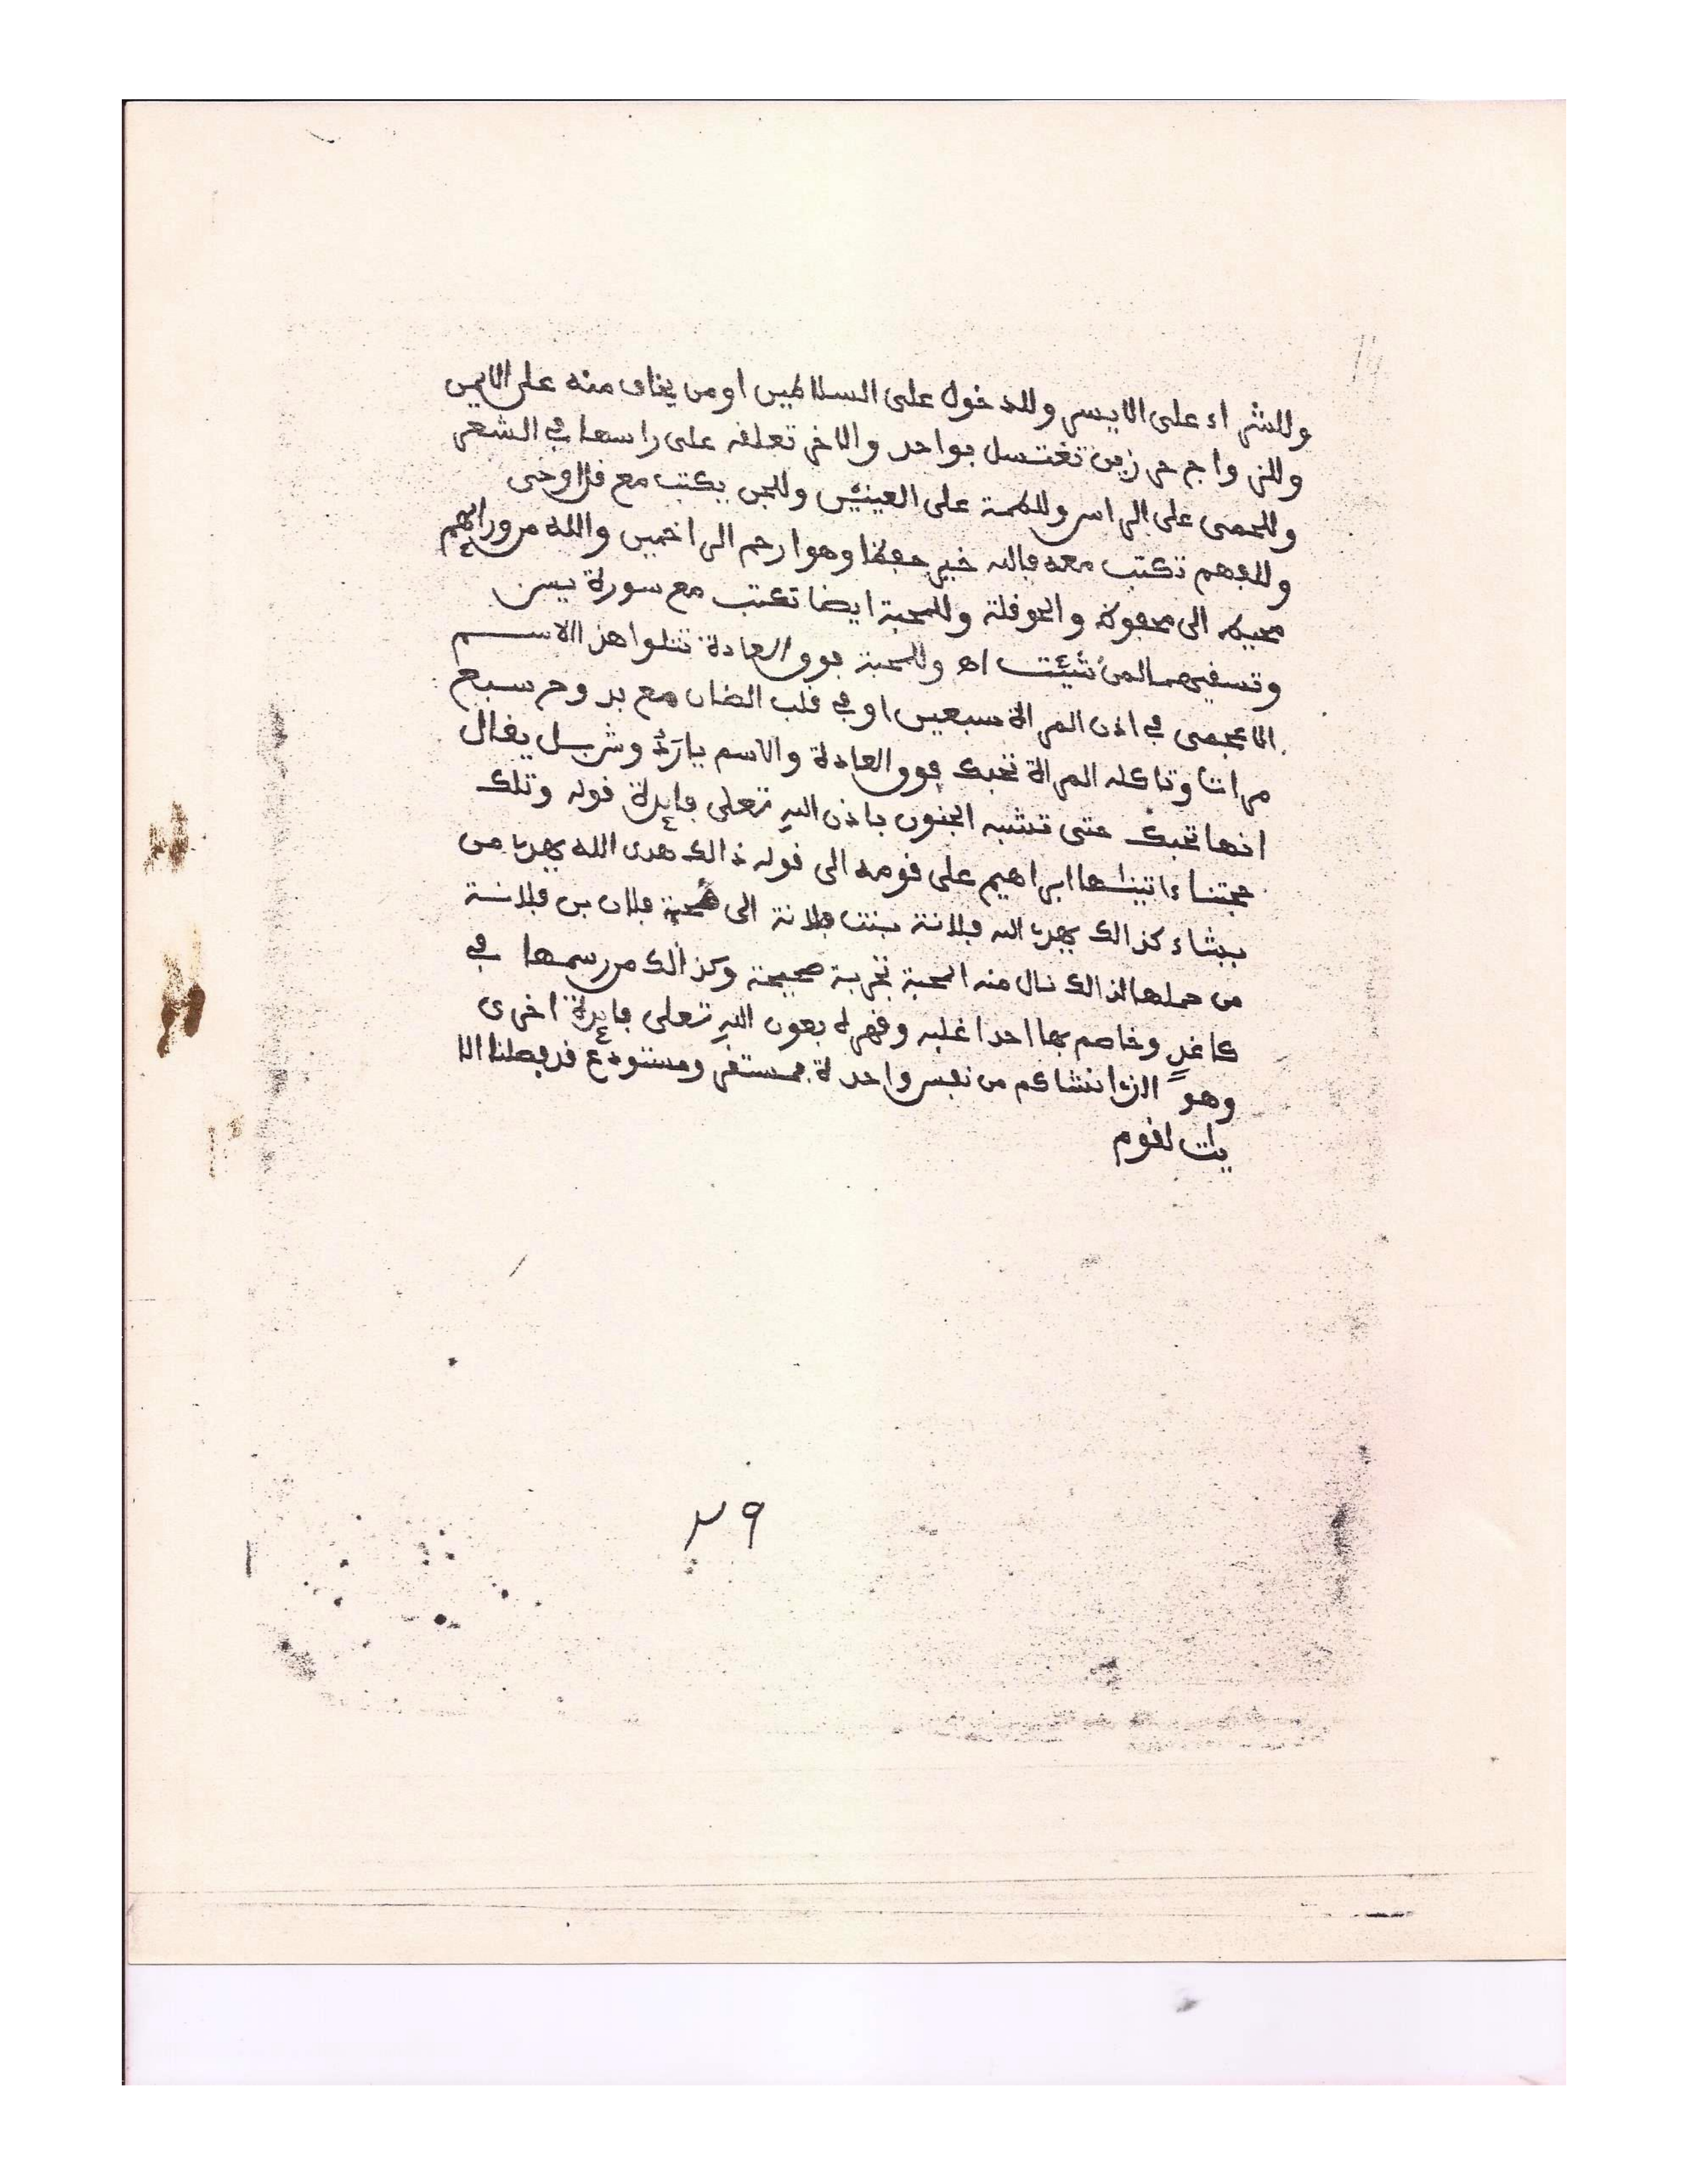 وللشراء على الايسر وللدخول على السلاطين او من يخاف منه على الايمن
وللزواج حرزين تغتسل بواحد والاخر تعلقه على راسها في الشعر
وللحمى على الراس وللكمة على العينين وللجن يكتب مع قل اوحى
وللفهم تكتب معه فالله خير حفظا وهو ارحم الراحمين والله من ورائهم
محيط الى محفوظ والحوقلة وللمحبة ايضا تكتب مع سورة يس
وتسقيهما لمن شئت اه وللمحبة فوق العادة تتلوا هذا الاسم
الاعجمى في اذن المراة سبعين او في قلب الضان مع بدوح سبع
مرات وتاكله المراة تحبك فوق العادة والاسم يا يقال
انها تحبك حتى تشبه الجنون باذن الله تعلى فايدة قوله وتلك
حجتنا ءاتينها ابراهيم على قومه الى قوله ذالك هدى الله يهدي من
يشاء كذالك يهدي الله فلانة بنت فلانة الى محبة فلان بن فلانة
من حملها لذالك نال منه المحبة تجربة صحيحة وكذالك من رسمها في
كاغد وخاصم بها احدا غلبه وقهره بعون الله تعلى فايدة اخرى
وهو الذي انشاكم من نفس واحدة فمستقر ومستودع قد فصلنا الا
يات لقوم
٢٩